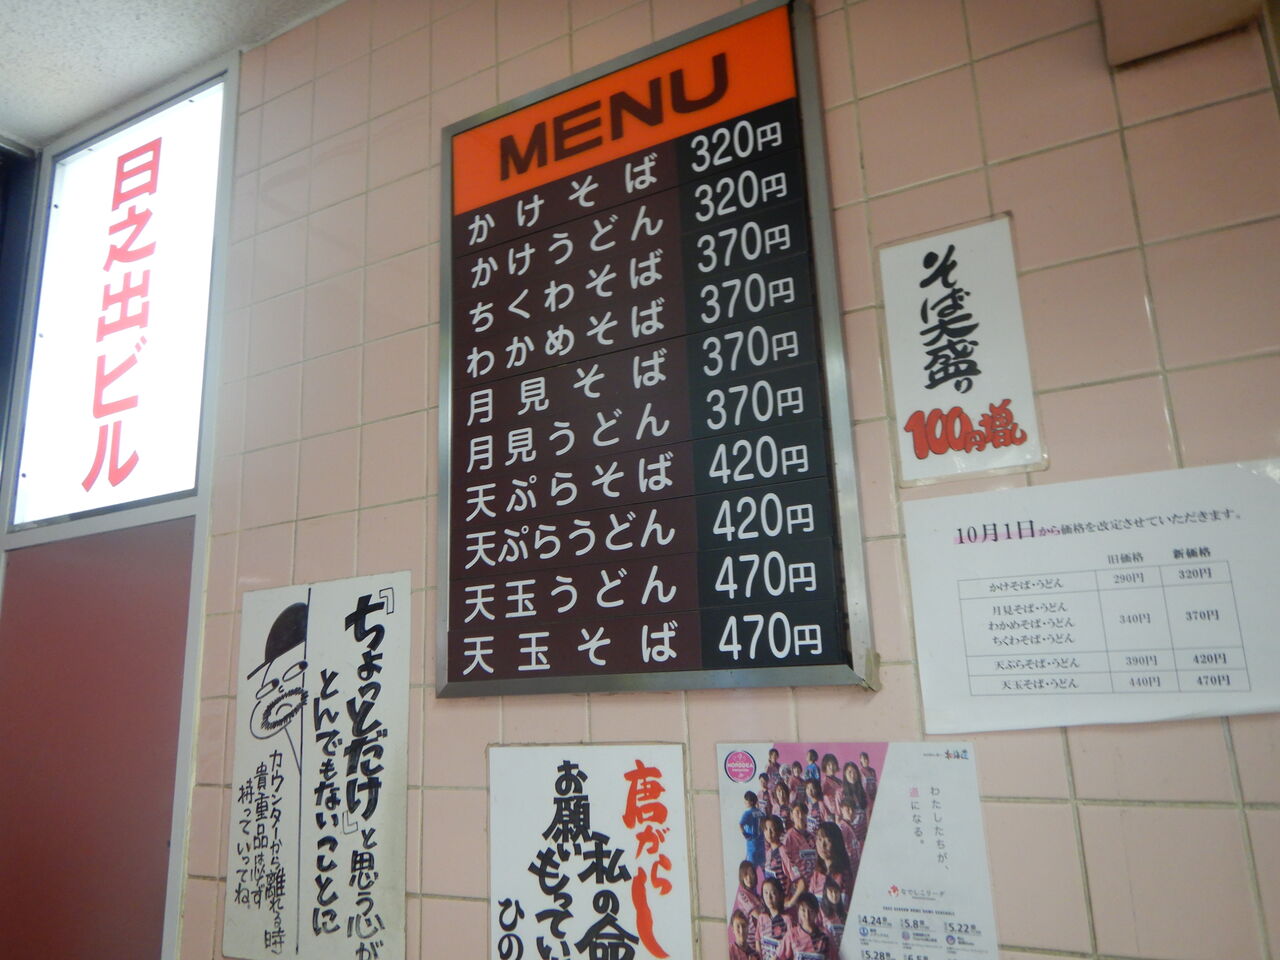 日之出ビル
MENU
かけそば 320円
かけうどん 320円
ちくわそば 370円
わかめそば 370円
月見そば 370円
月見うどん 370円
天ぷらそば 420円
天ぷらうどん 420円
天玉うどん 470円
天玉そば 470円
そば大盛り
100円増し
10月1日から価格を改定させていただきます。
旧価格 新価格
かけそば・うどん 290円 320円
月見そば・うどん
わかめそば・うどん 340円 370円
ちくわそば・うどん
天ぷらそば・うどん 390円 420円
天玉そば・うどん 440円 470円
『ちょっとだけ』と思う心が
とんでもないことに
カウンターから離れる時
貴重品は必ず
持っていってね。
唐がらし
私の命
お願いもってい
ひの
わたしたちが、
道になる。
なでしこリーグ
4.24 5.8 5.22
5.28 6.5